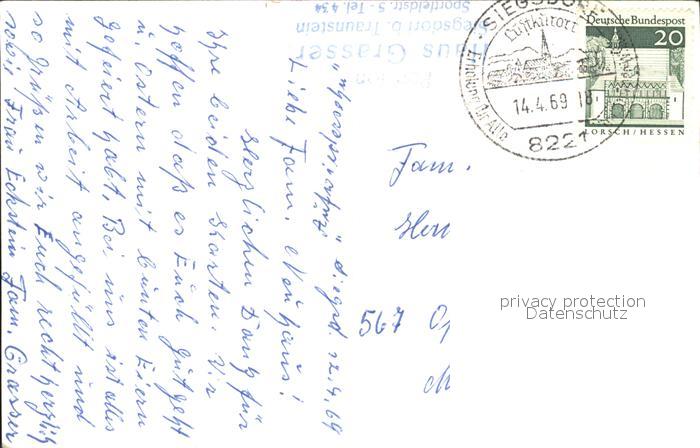 Pension
Haus Grasser
Siegsdorf b. Traunstein
Sportfeldstr. 5 - Tel. 434
Siegsd. 12.4.69
Liebe Fam. Neuhaus!
Herzlichen Dank für
Ihre beiden Karten. Wir
hoffen daß es Euch gut geht
u. Ostern mit bunten Eiern
gefeiert habt. Bei uns ist alles
mit Arbeit angefüllt und
so grüßen wir Euch recht herzlich
sowie Frau Eckstein Fam. Grasser
SIEGSDORF
Luftkurort
Erholung für Alle
14.4.69 18
8227
Deutsche Bundespost
20
LORSCH / HESSEN
Fam.
Herr
567 O
privacy protection
Datenschutz